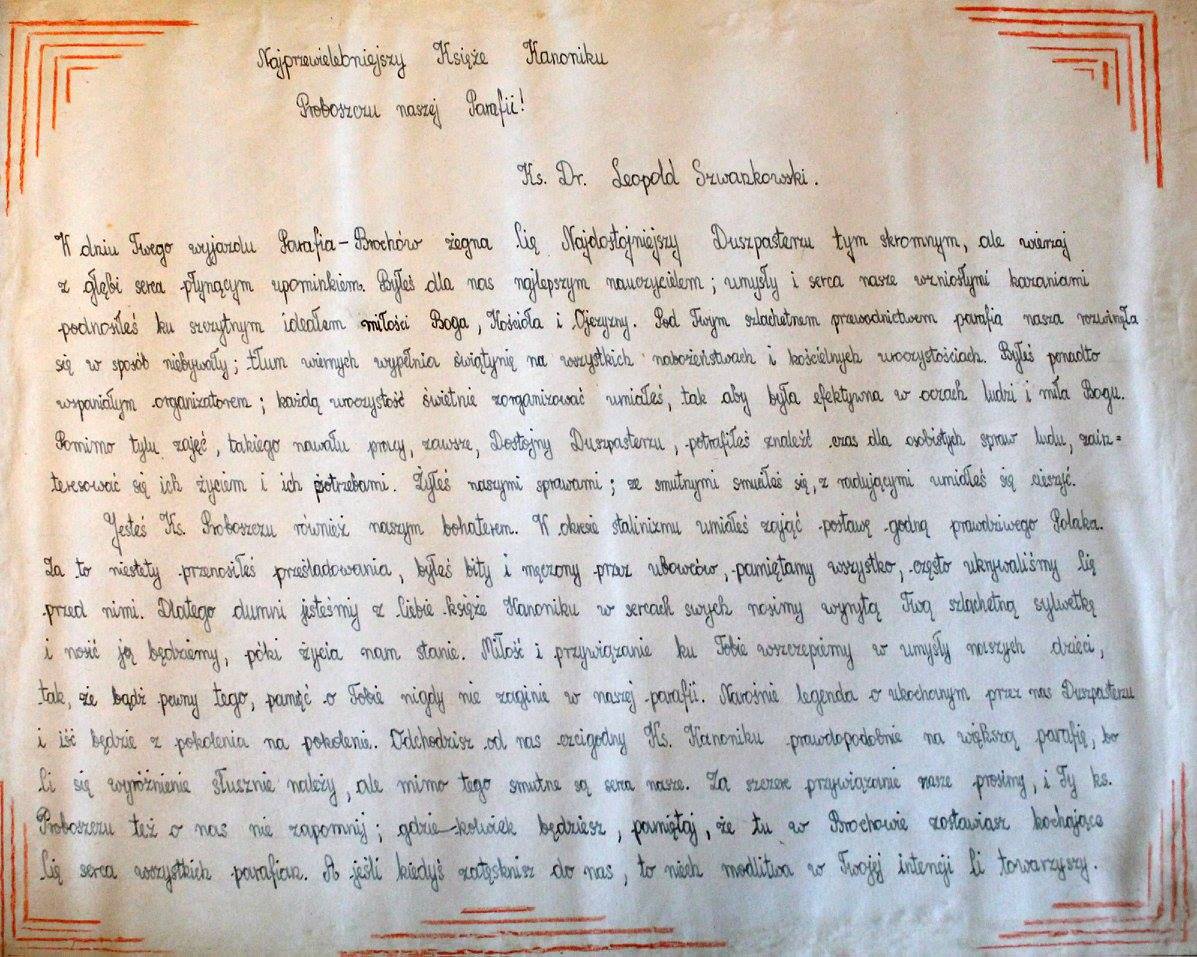 Najprzewielebniejszy Księże Kanoniku
Proboszczu naszej Parafii!
Ks. Dr. Leopold Szwankowski.
W dniu Twego wyjazdu Parafia - Brochów żegna Cię Najdostojniejszy Duszpasterzu tym skromnym, ale wierzaj
z głębi serca płynącym upominkiem. Byłeś dla nas najlepszym nauczycielem; umysły i serca nasze wzniosłymi kazaniami
podnosiłeś ku szczytnym ideałem miłości Boga, Kościoła i Ojczyzny. Pod Twym szlachetnem przewodnictwem parafia nasza rozwinęła
się w sposób niebywały; tłum wiernych wypełnia świątynię na wszystkich nabożeństwach i kościelnych uroczystościach. Byłeś ponadto
wspaniałym organizatorem; każdą uroczystość świetnie zorganizować umiałeś, tak aby była efektywna w oczach ludzi i miła Bogu.
Pomimo tylu zajęć, takiego nawału pracy, zawsze, Dostojny Duszpasterzu, potrafiłeś znaleźć czas dla osobistych spraw ludu, zain=
teresować się ich życiem i ich potrzebami. Żyłeś naszymi sprawami; ze smutnymi smuciłeś się, z radującymi umiałeś się cieszyć.
Jesteś Ks. Proboszczu również naszym bohaterem. W okresie stalinizmu umiałeś zająć postawę godną prawdziwego Polaka.
Za to niestety przenosiłeś prześladowania, byłeś bity i męczony przez ubowców, pamiętamy wszystko, często ukrywaliśmy Cię
przed nimi. Dlatego dumni jesteśmy z Ciebie księże Kanoniku w sercach swych nosimy wyrytą Twą szlachetną sylwetkę
i nosić ją będziemy, póki życia nam stanie. Miłość i przywiązanie ku Tobie wszczepiemy w umysły naszych dzieci,
tak, że bądź pewny tego, pamięć o Tobie nigdy nie zaginie w naszej parafii. Narośnie legenda o ukochanym przez nas Duszpasterzu
i iść będzie z pokolenia na pokolenie. Odchodzisz od nas czcigodny Ks. Kanoniku prawdopodobnie na większą parafię, bo
Ci się wyróżnienie słusznie należy, ale mimo tego smutne są serca nasze. Za szczere przywiązanie nasze prosimy, i Ty ks.
Proboszczu też o nas nie zapomnij; gdzie-kolwiek będziesz, pamiętaj, że tu w Brochowie zostawiasz kochające
Cię serca wszystkich parafian. A jeśli kiedyś zatęsknisz do nas, to niech modlitwa w Twojej intencji Ci towarzyszy.